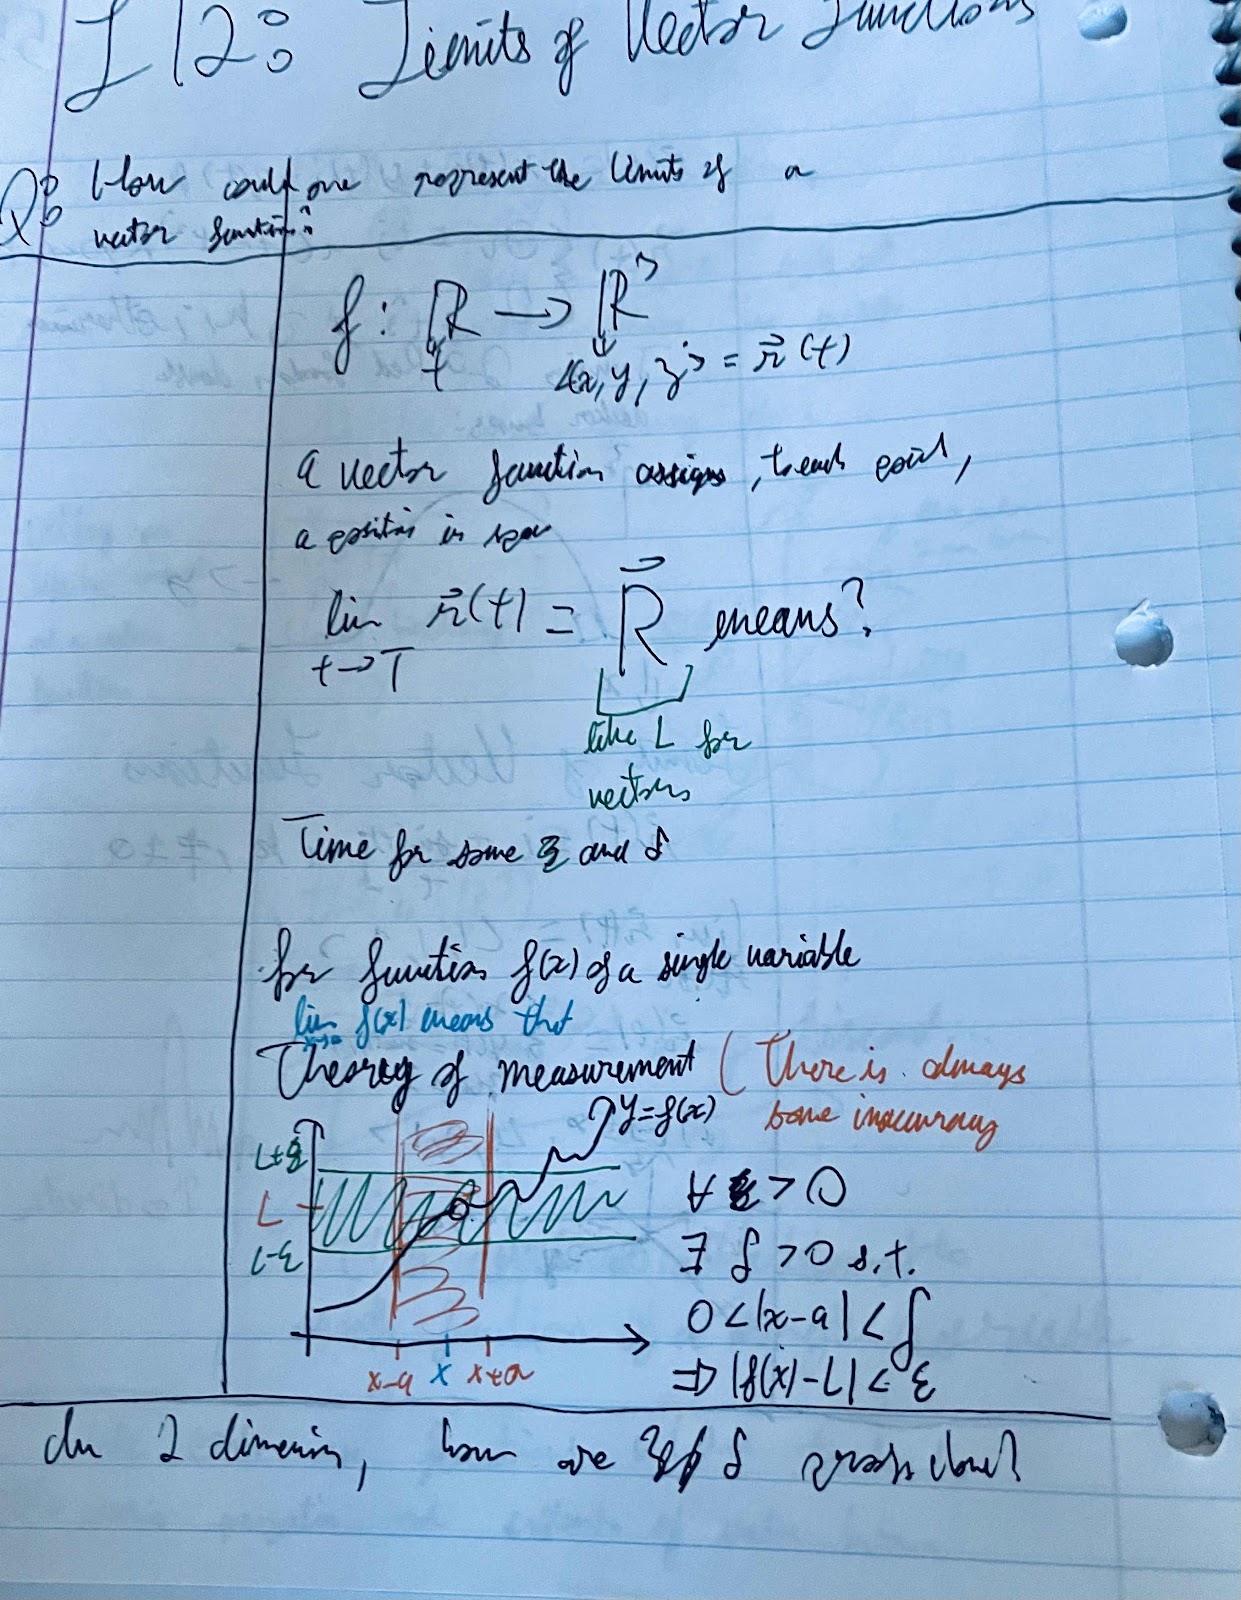 L12: Limits of Vector Functions
Q: How could one represent the limits of a
vector function?
f: ℝ → ℝ³
t <x, y, z> = r⃗(t)
a vector function assigns, to each point,
a position in
lim r⃗(t) = R⃗ means?
t→T
like L for
vectors
Time for some ε and δ
for function f(x) of a single variable
lim f(x) means that
Theory of measurement (There is always
some inaccuracy
y=f(x)
L+ε
L
L-ε
∀ ε > 0
∃ δ > 0 s.t.
0 < |x-a| < δ
⇒ |f(x)-L| < ε
x-a x x+a
In 2 dimension, how are ε δ